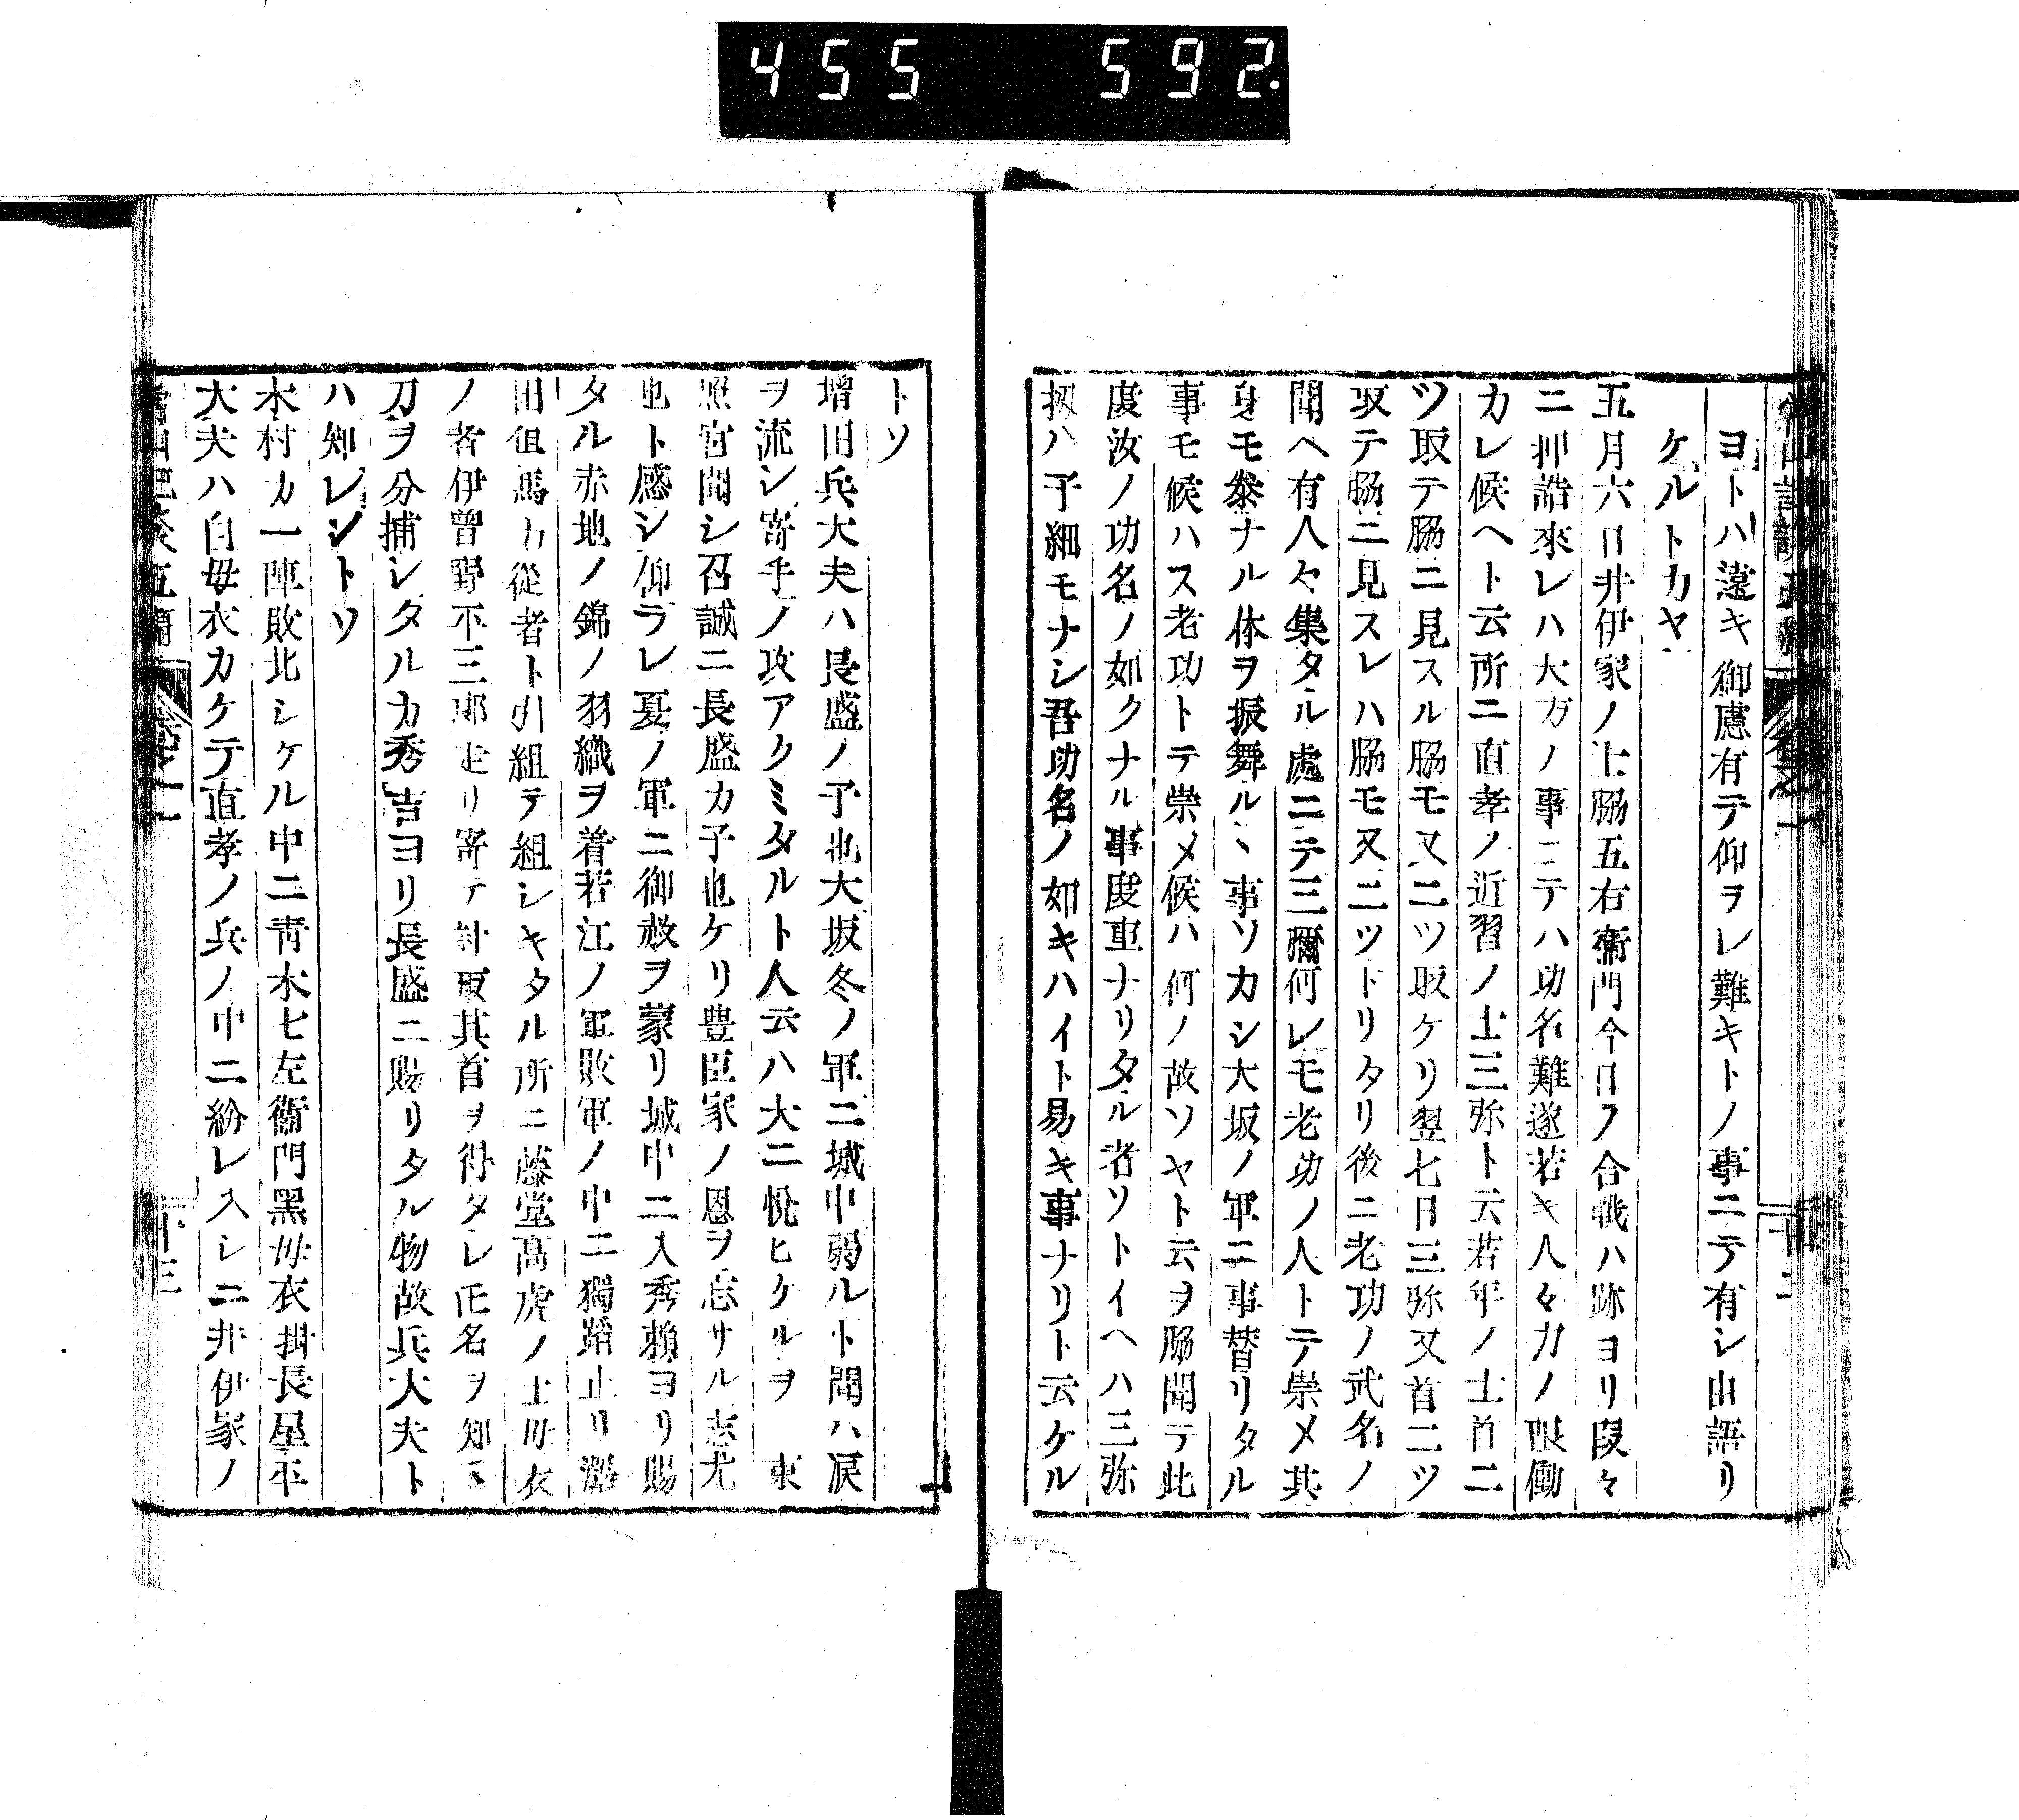 455 592.
ヨトハ遠キ御慮有テ仰ラレ難キトノ事ニテ有シ由語リ
ケルトカヤ
五月六日井伊家ノ士脇五右衛門今日ノ合戦ハ跡ヨリ段々
ニ押詰來レハ大方ノ事ニテハ功名難遂若キ人々力ノ限働
カレ候ヘト云所ニ直孝ノ近習ノ士三弥ト云若年ノ士首二
ツ取テ脇ニ見スル脇モ又二ツ取ケリ翌七日三弥又首二ツ
取テ脇ニ見スレハ脇モ又二ツトリタリ後ニ老功ノ武名ノ
聞ヘ有人々集タル處ニテ三彌何レモ老功ノ人トテ崇メ其
身モ泰ナル体ヲ振舞ルヽ事ソカシ大坂ノ軍ニ事替リタル
事モ候ハス老功トテ崇メ候ハ何ノ故ソヤト云ヲ脇聞テ此
度汝ノ功名ノ如クナル事度重ナリタル者ソトイヘハ三弥
扨ハ子細モナシ吾功名ノ如キハイト易キ事ナリト云ケル
トソ
増田兵大夫ハ長盛ノ子也大坂冬ノ軍ニ城中弱ルト聞ハ涙
ヲ流シ寄手ノ攻アクミタルト人云ハ大ニ悦ヒケルヲ 東
照宮聞シ召誠ニ長盛カ子也ケリ豊臣家ノ恩ヲ忘サル志尤
也ト感シ仰ラレ夏ノ軍ニ御赦ヲ蒙リ城中ニ入秀頼ヨリ賜
タル赤地ノ錦ノ羽織ヲ着若江ノ軍敗軍ノ中ニ獨踏止リ磯
田徂馬カ從者ト引組テ組シキタル所ニ藤堂髙虎ノ士母衣
ノ者伊曾野不三郎走リ寄テ討取其首ヲ得タレ𪜈名ヲ知ヽ
刀ヲ分捕シタルカ秀吉ヨリ長盛ニ賜リタル物故兵大夫ト
ハ知レシトソ
木村カ一陣敗北シケル中ニ靑木七左衞門黑母衣掛長屋平
大夫ハ白母衣カケテ直孝ノ兵ノ中ニ紛レ入シニ井伊家ノ